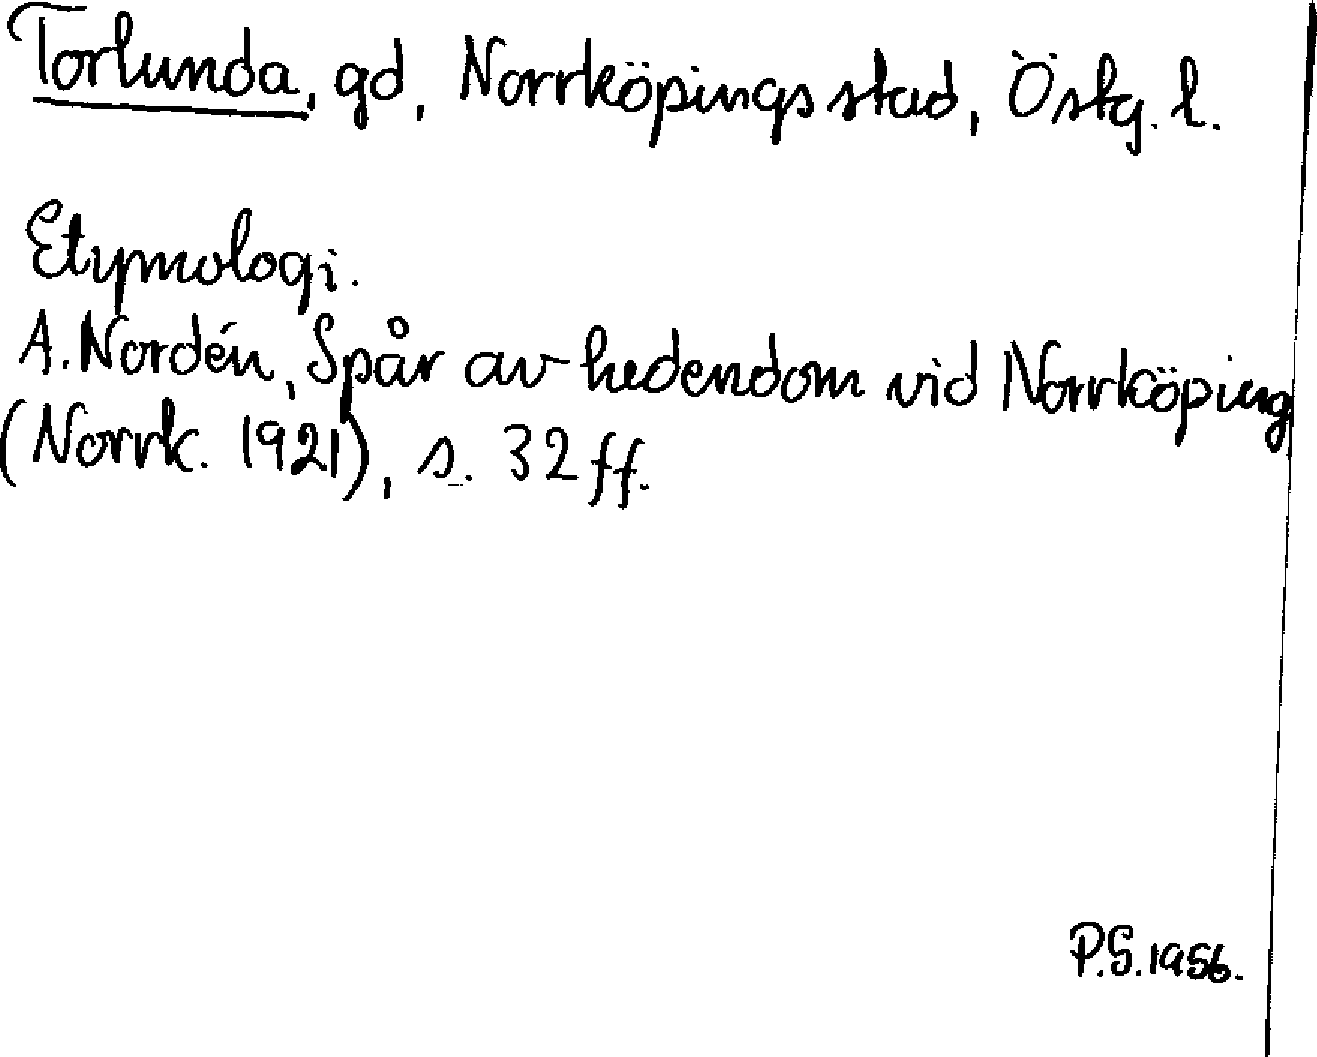 Torlunda, gd, Norrköpings stad, Östg. l.
Etymologi.
A. Nordén, Spår av hedendom vid Norrköping
(Norrk. 1921), s. 32 ff.
P.S. 1956.